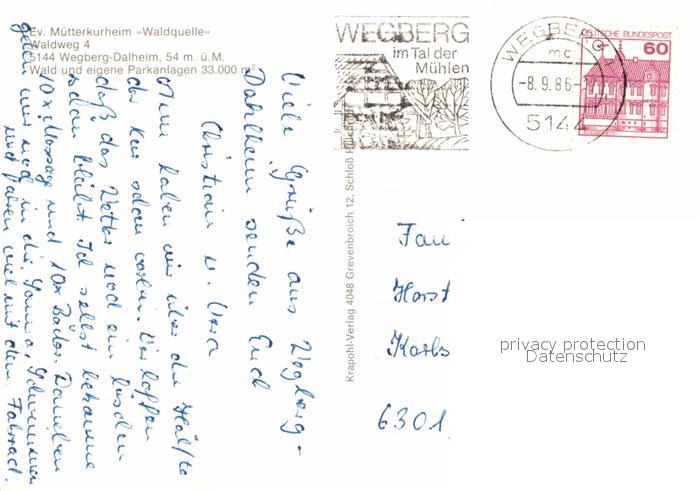 Ev. Mütterkurheim »Waldquelle«
Waldweg 4
5144 Wegberg-Dalheim, 54 m. ü. M.
Wald und eigene Parkanlagen 33.000 m²
WEGBERG
im Tal der
Mühlen
WEGBERG
mc
-8.9.86-
5144
DEUTSCHE BUNDESPOST
60
Viele Grüße aus Wegberg-
Dahlheim senden Euch
Christian u. Vera
Nun haben wir über die Hälfte
der Kur schon vorbei. Wir hoffen
daß das Wetter noch ein bischen
schön bleibt. Ich selbst bekomme
10x Massage und 10x Bäder. Daneben
gehen wir noch in die Sauna, Schwimmen
und fahren viel mit dem Fahrrad.
Krapohl-Verlag 4048 Grevenbroich 12, Schloß
Horst
6301
privacy protection
Datenschutz